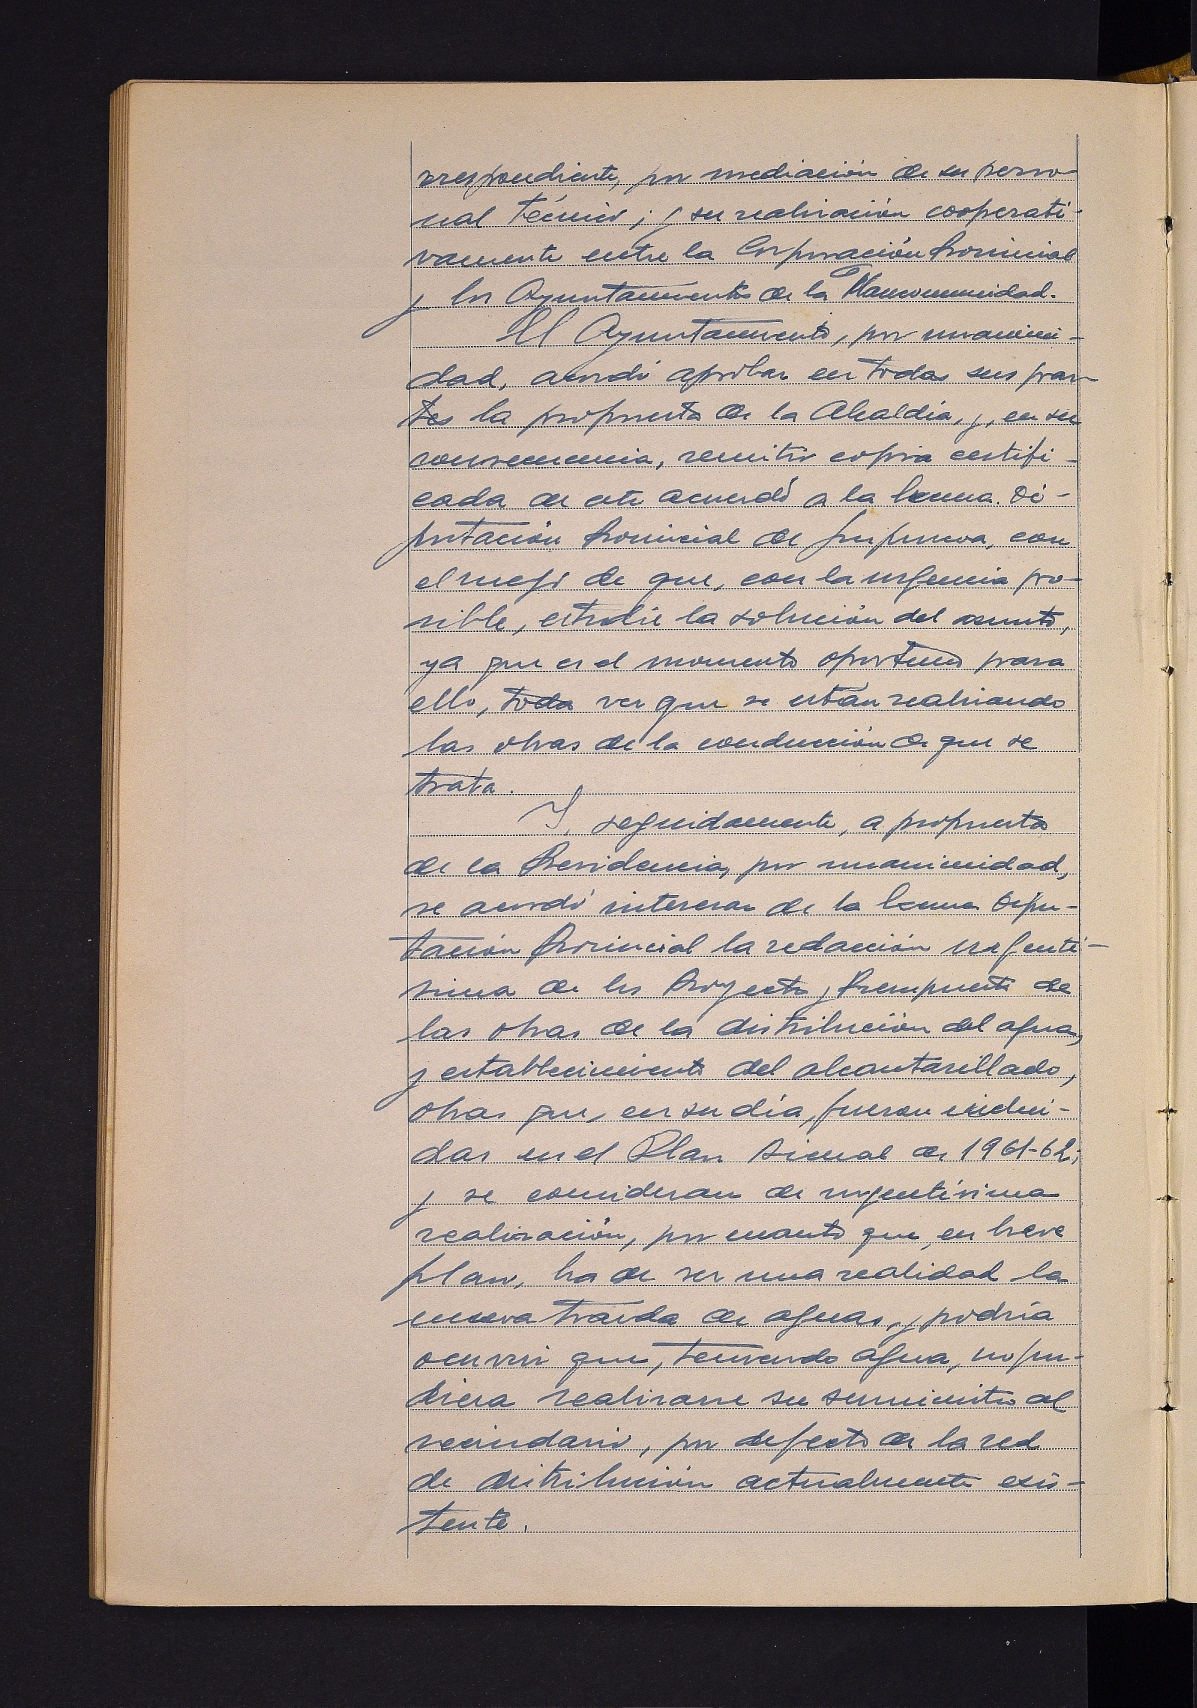 rrespondiente, por mediación de su perso-
nal técnico; y su realización cooperati-
vamente entre la Corporación Provincial
y los Ayuntamientos de la Mancomunidad.
El Ayuntamiento, por unanimi-
dad, acordó aprobar en todas sus par-
tes la propuesta de la Alcaldía, y, en su
consecuencia, remitir copia certifi-
cada de este acuerdo a la Excma. Di-
putación Provincial de Guipúzcoa, con
el ruego de que, con la urgencia po-
sible, estudie la solución del asunto,
ya que es el momento oportuno para
ello, toda vez que se están realizando
las obras de la conducción de que se
trata.
Y, seguidamente, a propuesta
de la Presidencia, por unanimidad,
se acordó interesar de la Excma Dipu-
tación Provincial la redacción urgentí-
sima de los Proyectos y Presupuesto de
las obras de la distribución del agua,
y establecimiento del alcantarillado,
obras que, en su día, fueron inclui-
das en el Plan Bienal de 1961-62;
y se consideran de urgentísima
realización, por cuanto que, en breve
plazo, ha de ser una realidad la
nueva traída de aguas, y podría
ocurrir que, teniendo agua, no pu-
diera realizarse su suministro al
vecindario, por defecto de la red
de distribución actualmente exis-
tente.